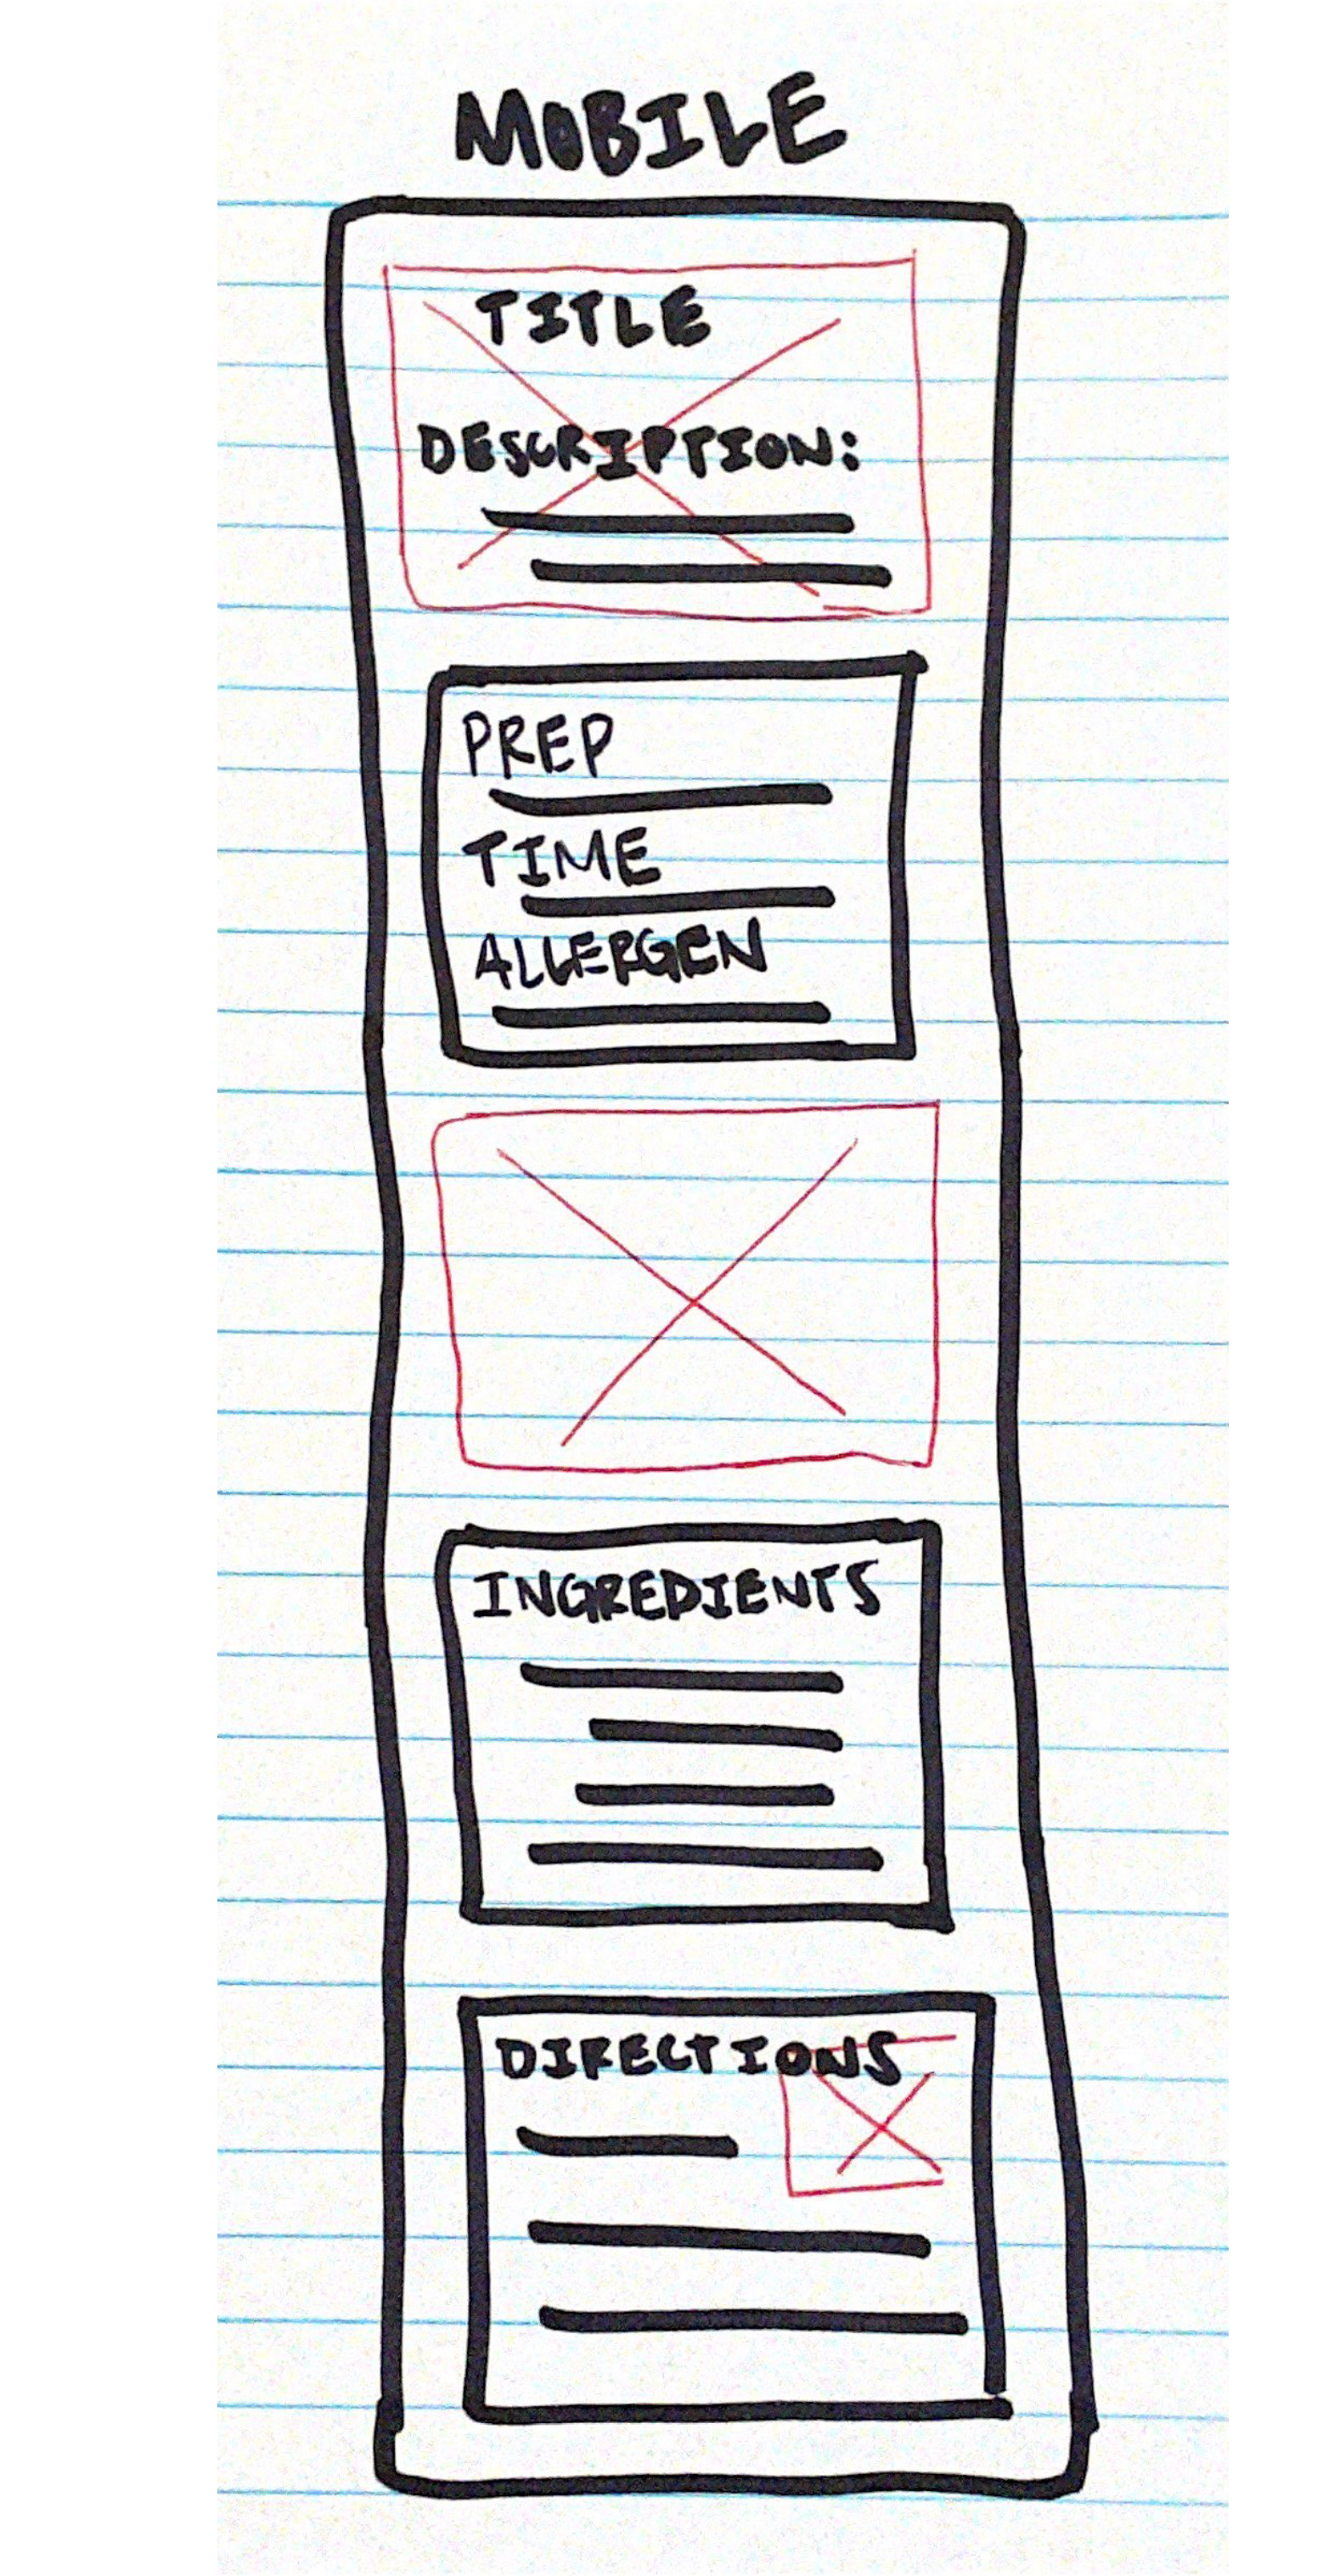 MOBILE
TITLE
DESCRIPTION:
PREP
TIME
ALLERGEN
INGREDIENTS
DIRECTIONS